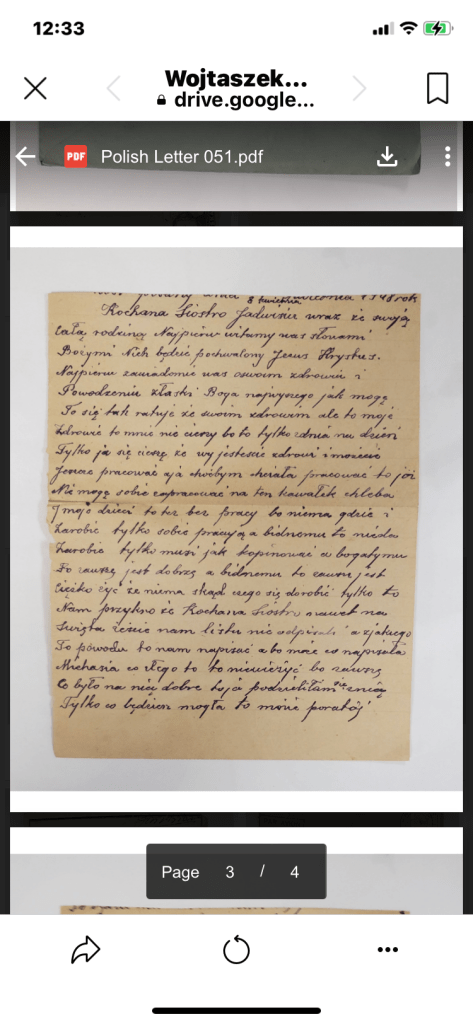 12:33
Wojtaszek...
drive.google...
PDF Polish Letter 051.pdf
8 kwietnia 1948 rok
Kochana Siostro Jadwisiu wraz ze swoją
całą rodziną Najpierw witamy was słowami
Bożymi Nich będzie pochwalony Jezus Hrystus.
Najpierw zawiadomie was oswoim zdrowiu i
Powodzeniu złaski Boga najwyszego jak mogę
To się tak ratuje ze swoim zdrowim ale to moje
Zdrowie to mnie nie cieszy bo to tylko zdnia na dzień
Tylko ja się cieszę że wy jesteście zdrowi i możecie
Jeszcze pracować aja choćbym chciała pracować to joż
Nie mogę sobie zapracować na ten kawałek chleba
I moje dzieci to też bez pracy bo niema gdzie i
Zarobić tylko sobie pracują a bidnemu to nieda
Zarobić tylko musi jak kopinować a bogatymu
To zawszę jest dobrze a bidnemu to zawsze jest
Ciężko żyć że niema skąd czego się dorobić tylko to
Nam przykro że Kochana Siostro nawet na
Święta żeście nam listu nie odpisali a zjakiego
To powodu to nam napisać abo może co napisała
Michasia co złego to to niewierzyć bo zawszę
Co było na niej dobre to ja podzieliłam się znią
Tylko co będziem mogła to może porabić
Page 3 / 4